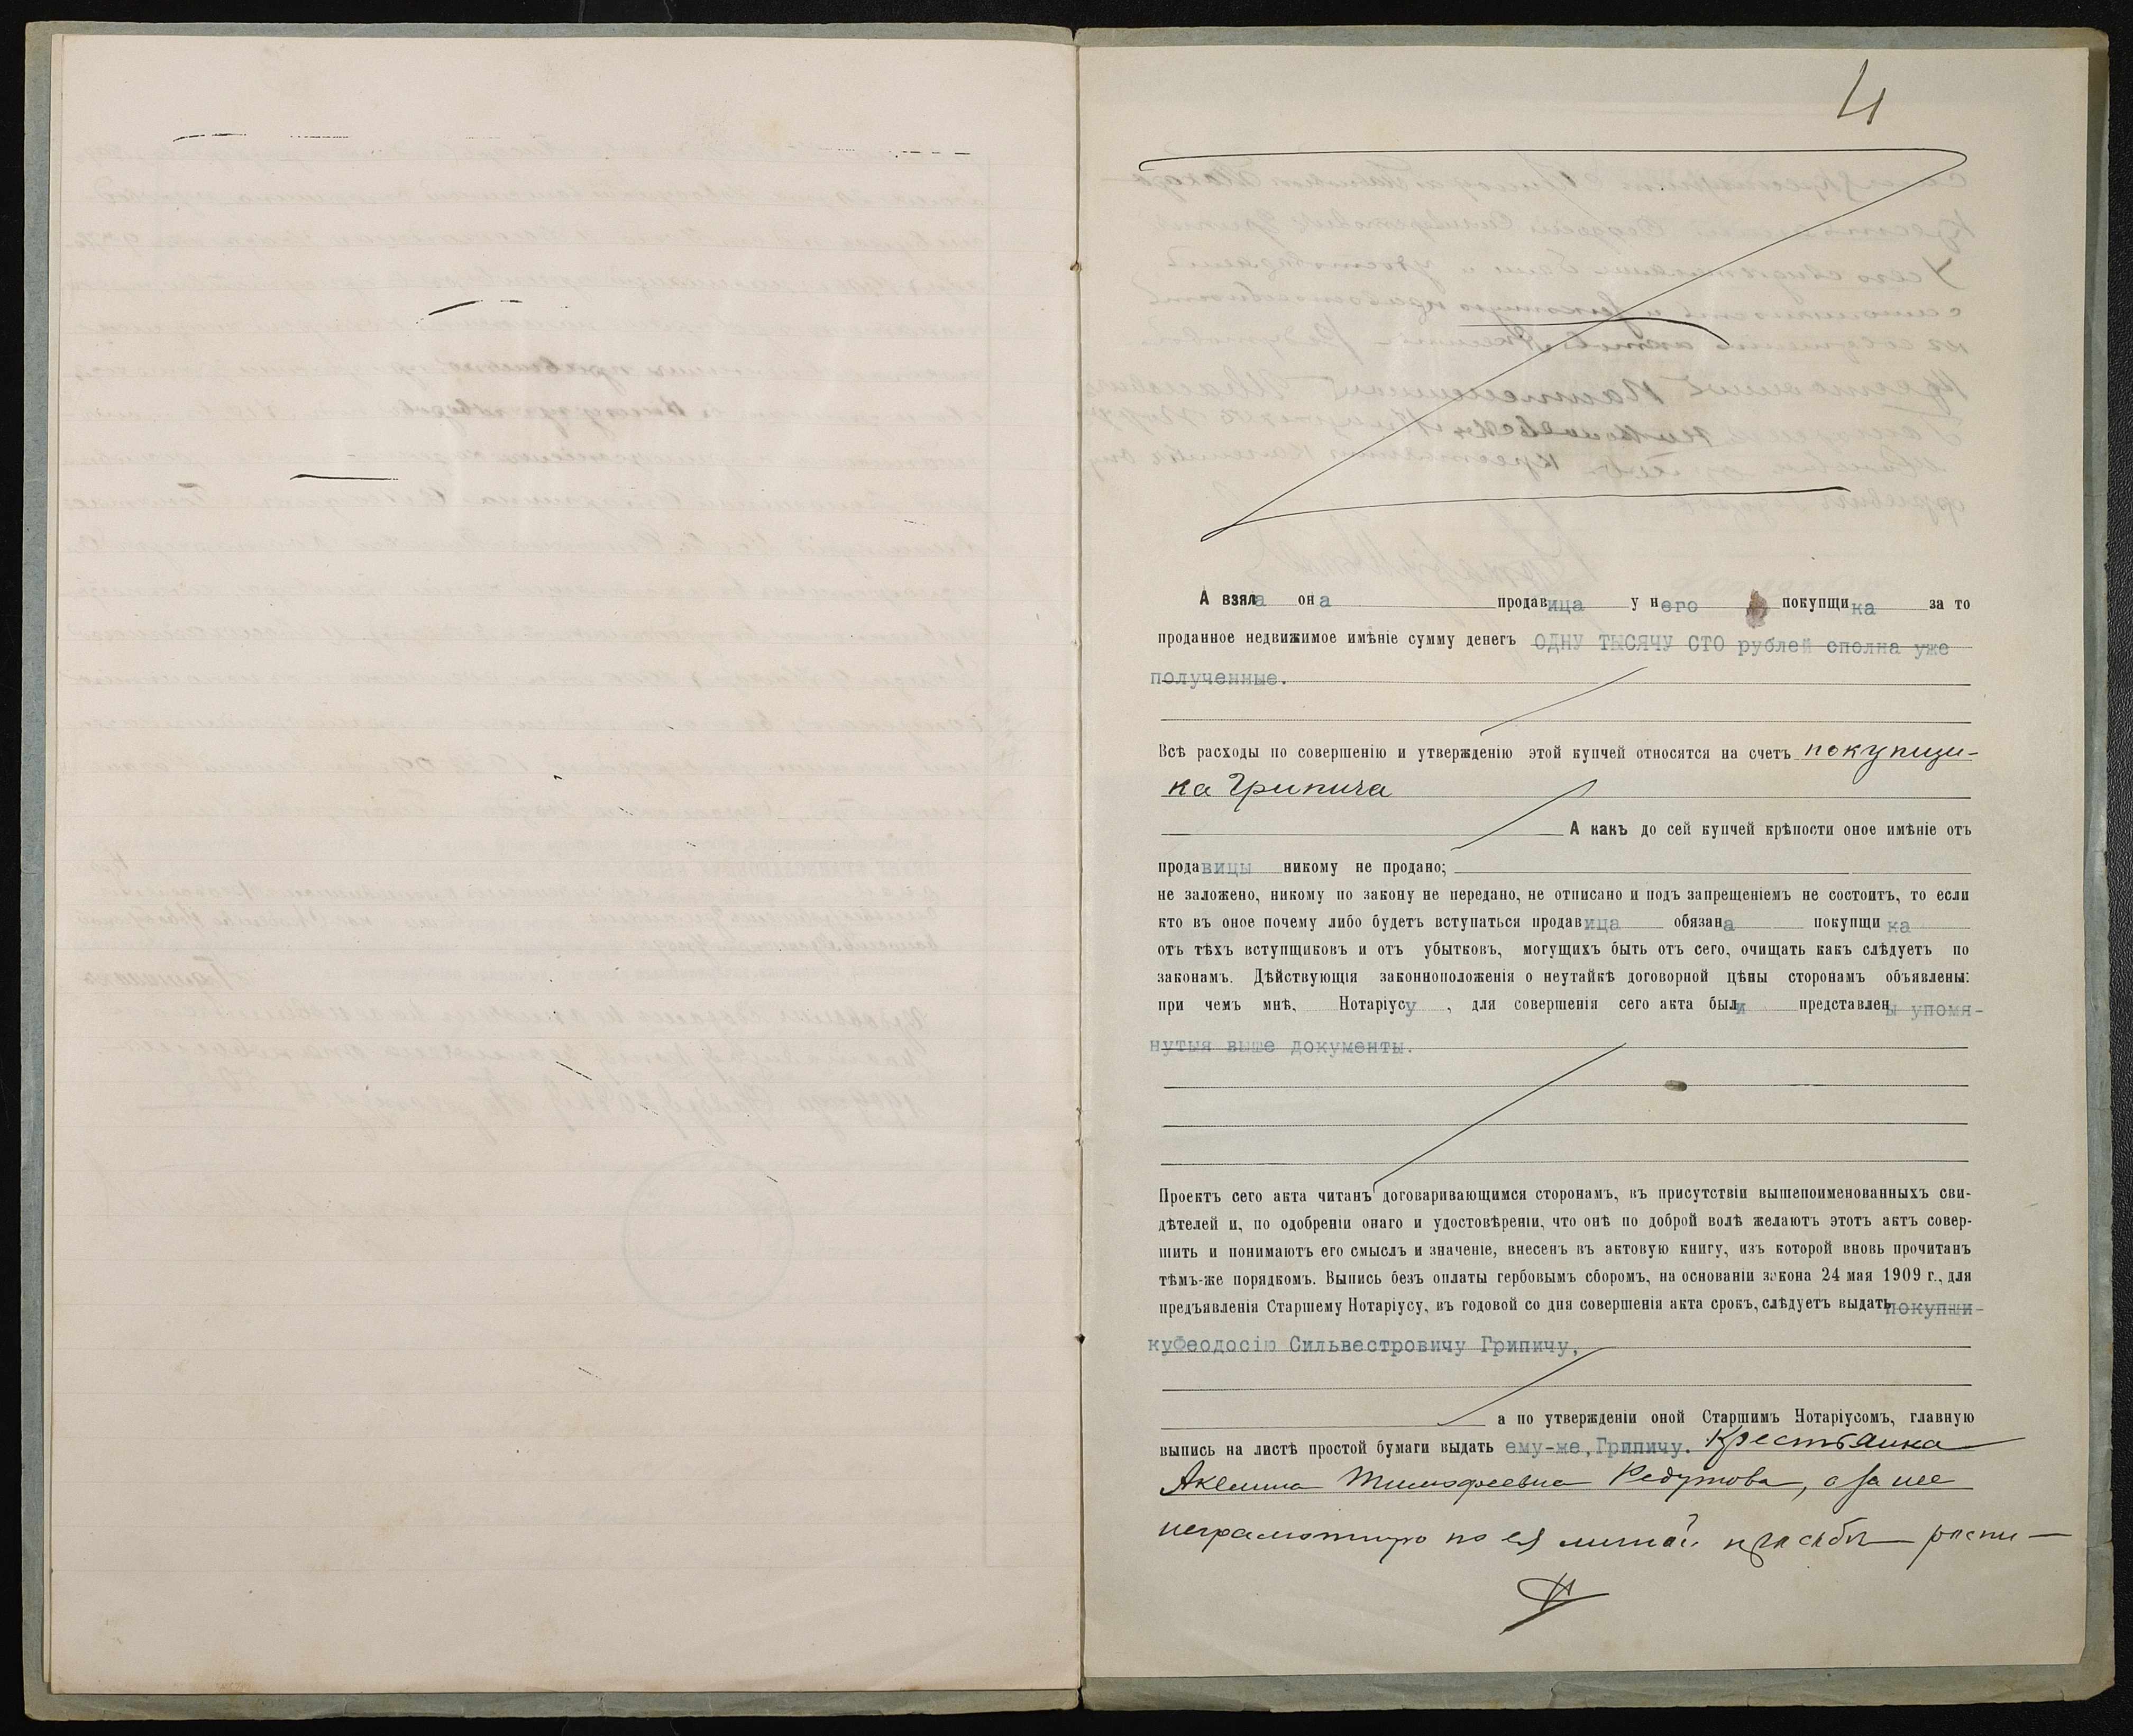 4
А взяла она продавица у него покупщика за то
проданное недвижимое имѣніе сумму денегъ ОДНУ ТЫСЯЧУ СТО рублей сполна уже
полученные.
Всѣ расходы по совершенію и утвержденію этой купчей относятся на счетъ покупщи-
ка Грипича
А какъ до сей купчей крѣпости оное имѣніе отъ
продавицы никому не продано;
не заложено, никому по закону не передано, не отписано и подъ запрещеніемъ не состоитъ, то если
кто въ оное почему либо будетъ вступаться продавица обязана покупщика
отъ тѣхъ вступщиковъ и отъ убытковъ, могущихъ быть отъ сего, очищать какъ слѣдуетъ по
законамъ. Дѣйствующія законноположенія о неутайкѣ договорной цѣны сторонамъ объявлены:
при чемъ мнѣ, Нотаріусу, для совершенія сего акта были представлены упомя-
нутыя выше документы.
Проектъ сего акта читанъ договаривающимся сторонамъ, въ присутствіи вышепоименованныхъ сви-
дѣтелей и, по одобреніи онаго и удостовѣреніи, что онѣ по доброй волѣ желаютъ этотъ актъ совер-
шить и понимаютъ его смыслъ и значеніе, внесенъ въ актовую книгу, изъ которой вновь прочитанъ
тѣмъ-же порядкомъ. Выпись безъ оплаты гербовымъ сборомъ, на основаніи закона 24 мая 1909 г., для
предъявленія Старшему Нотаріусу, въ годовой со дня совершенія акта срокъ, слѣдуетъ выдать покупщи-
куФеодосію Сильвестровичу Грипичу,
а по утвержденіи оной Старшимъ Нотаріусомъ, главную
выпись на листѣ простой бумаги выдать ему-же, Грипичу. Крестьянка
Акелина Тимофеевна Редутова, а за нее
неграмотную по ея личной просьбѣ распи-